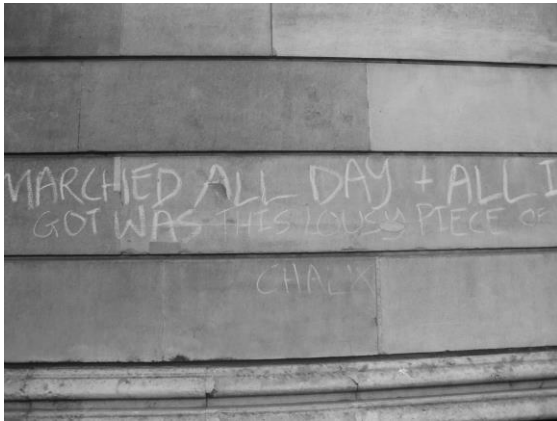 MARCHED ALL DAY + ALL I
GOT WAS THIS LOUSY PIECE OF
CHALK